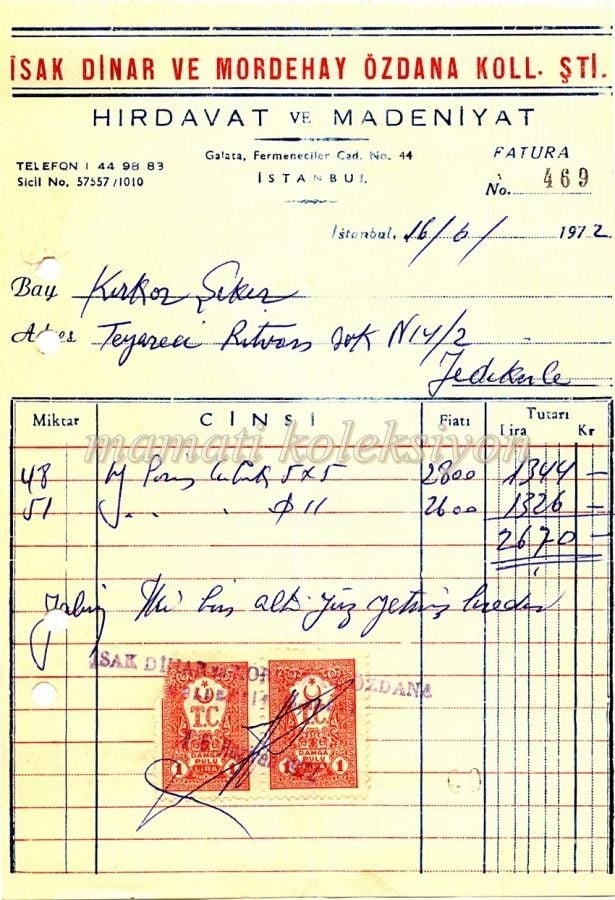 İSAK DİNAR VE MORDEHAY ÖZDANA KOLL. ŞTİ.
HIRDAVAT VE MADENİYAT
TELEFON : 44 98 83
Sicil No. 57557/1010
Galata, Fermeneciler Cad. No. 44
İSTANBUL
FATURA
No. 469
İstanbul, 16/6/1972
Bay Kirkor Şeker
Adres Teyareci Rıtvan sok N 14/2
Yedikule
Miktar CİNSİ Fiatı Tutarı
Lira Kr
mamati koleksiyon
48 5x5 2800 1344 —
51 " " ф 11 2600 1326 —
2670 —
Yalnız İki bin altı yüz yetmiş liradır
İSAK DİNAR ÖZDANA
T.C. T.C.
DAMGA PULU DAMGA PULU
1 LİRA 1 1